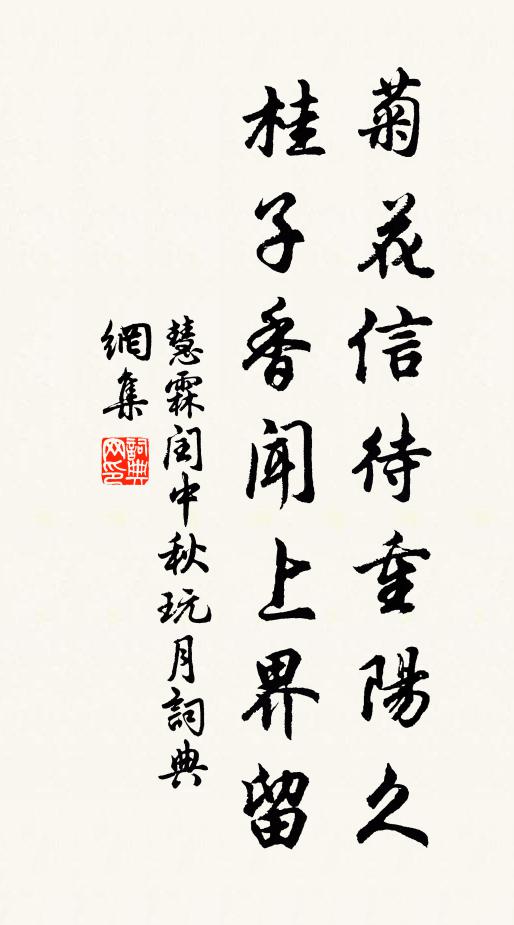 菊花信待重陽久
桂子香聞上界留
慧霖閏中秋玩月詞典
網集
詞典網印